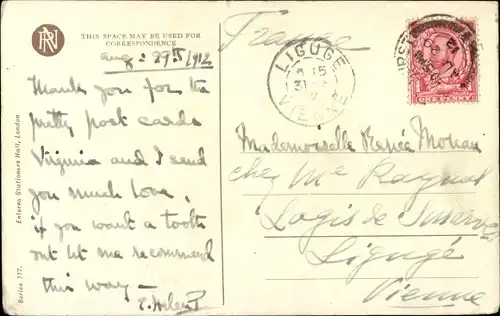 RN
THIS SPACE MAY BE USED FOR
CORRESPONDENCE
Aug: 29th 1912
Thank you for the
pretty post cards
Virginia and I send
you much love,
if you want a tooth
out let me recommend
this way —
E. Helen
Series 117.
Entered Stationers Hall, London
France
LIGUGÉ
15
31
VIENNE
ONE PENNY
Mademoiselle Renée
chez Me Raynal
Logis de
Ligugé
Vienne